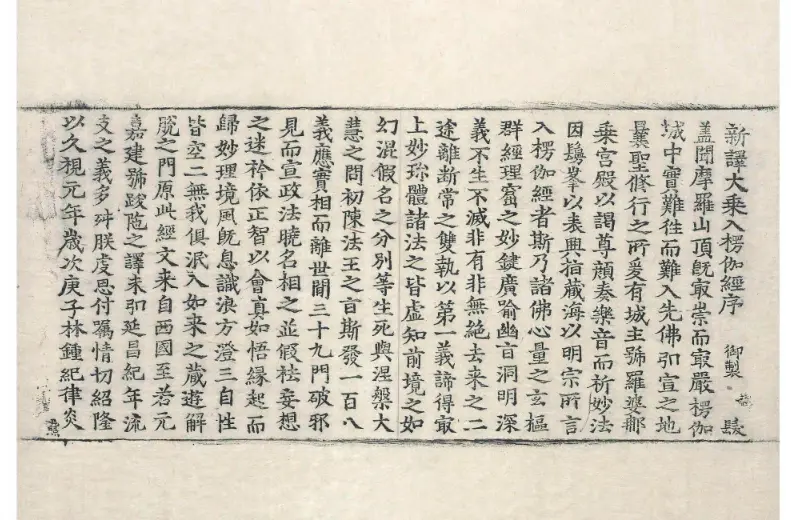 新譯大乗入楞伽經序 御製
蓋聞摩羅山頂旣㝡崇而㝡嚴楞伽
城中實難往而難入先佛弘宣之地
曩聖修行之所爰有城主號羅婆那
乗宮殿以謁尊顔奏樂音而祈妙法
因鬘峯以表興指藏海以明宗所言
入楞伽經者斯乃諸佛心量之玄樞
群經理窟之妙鍵廣喻幽旨洞明深
義不生不滅非有非無絶去来之二
途離斷常之雙執以第一義諦得㝡
上妙珎體諸法之皆虛知前境之如
幻混假名之分別等生死與涅槃大
慧之問初陳法王之旨斯發一百八
義應實相而離世間三十九門破邪
見而宣政法曉名相之並假袪妄想
之迷衿依正智以會真如悟緣起而
歸妙理境風旣息識浪方澄三自性
皆空二無我俱泯入如来之藏遊解
脫之門原此經文来自西國至若元
嘉建號跋陁之譯未弘延昌紀年流
支之義多舛朕虔思付囑情切紹隆
以久視元年歲次庚子林鍾紀律炎